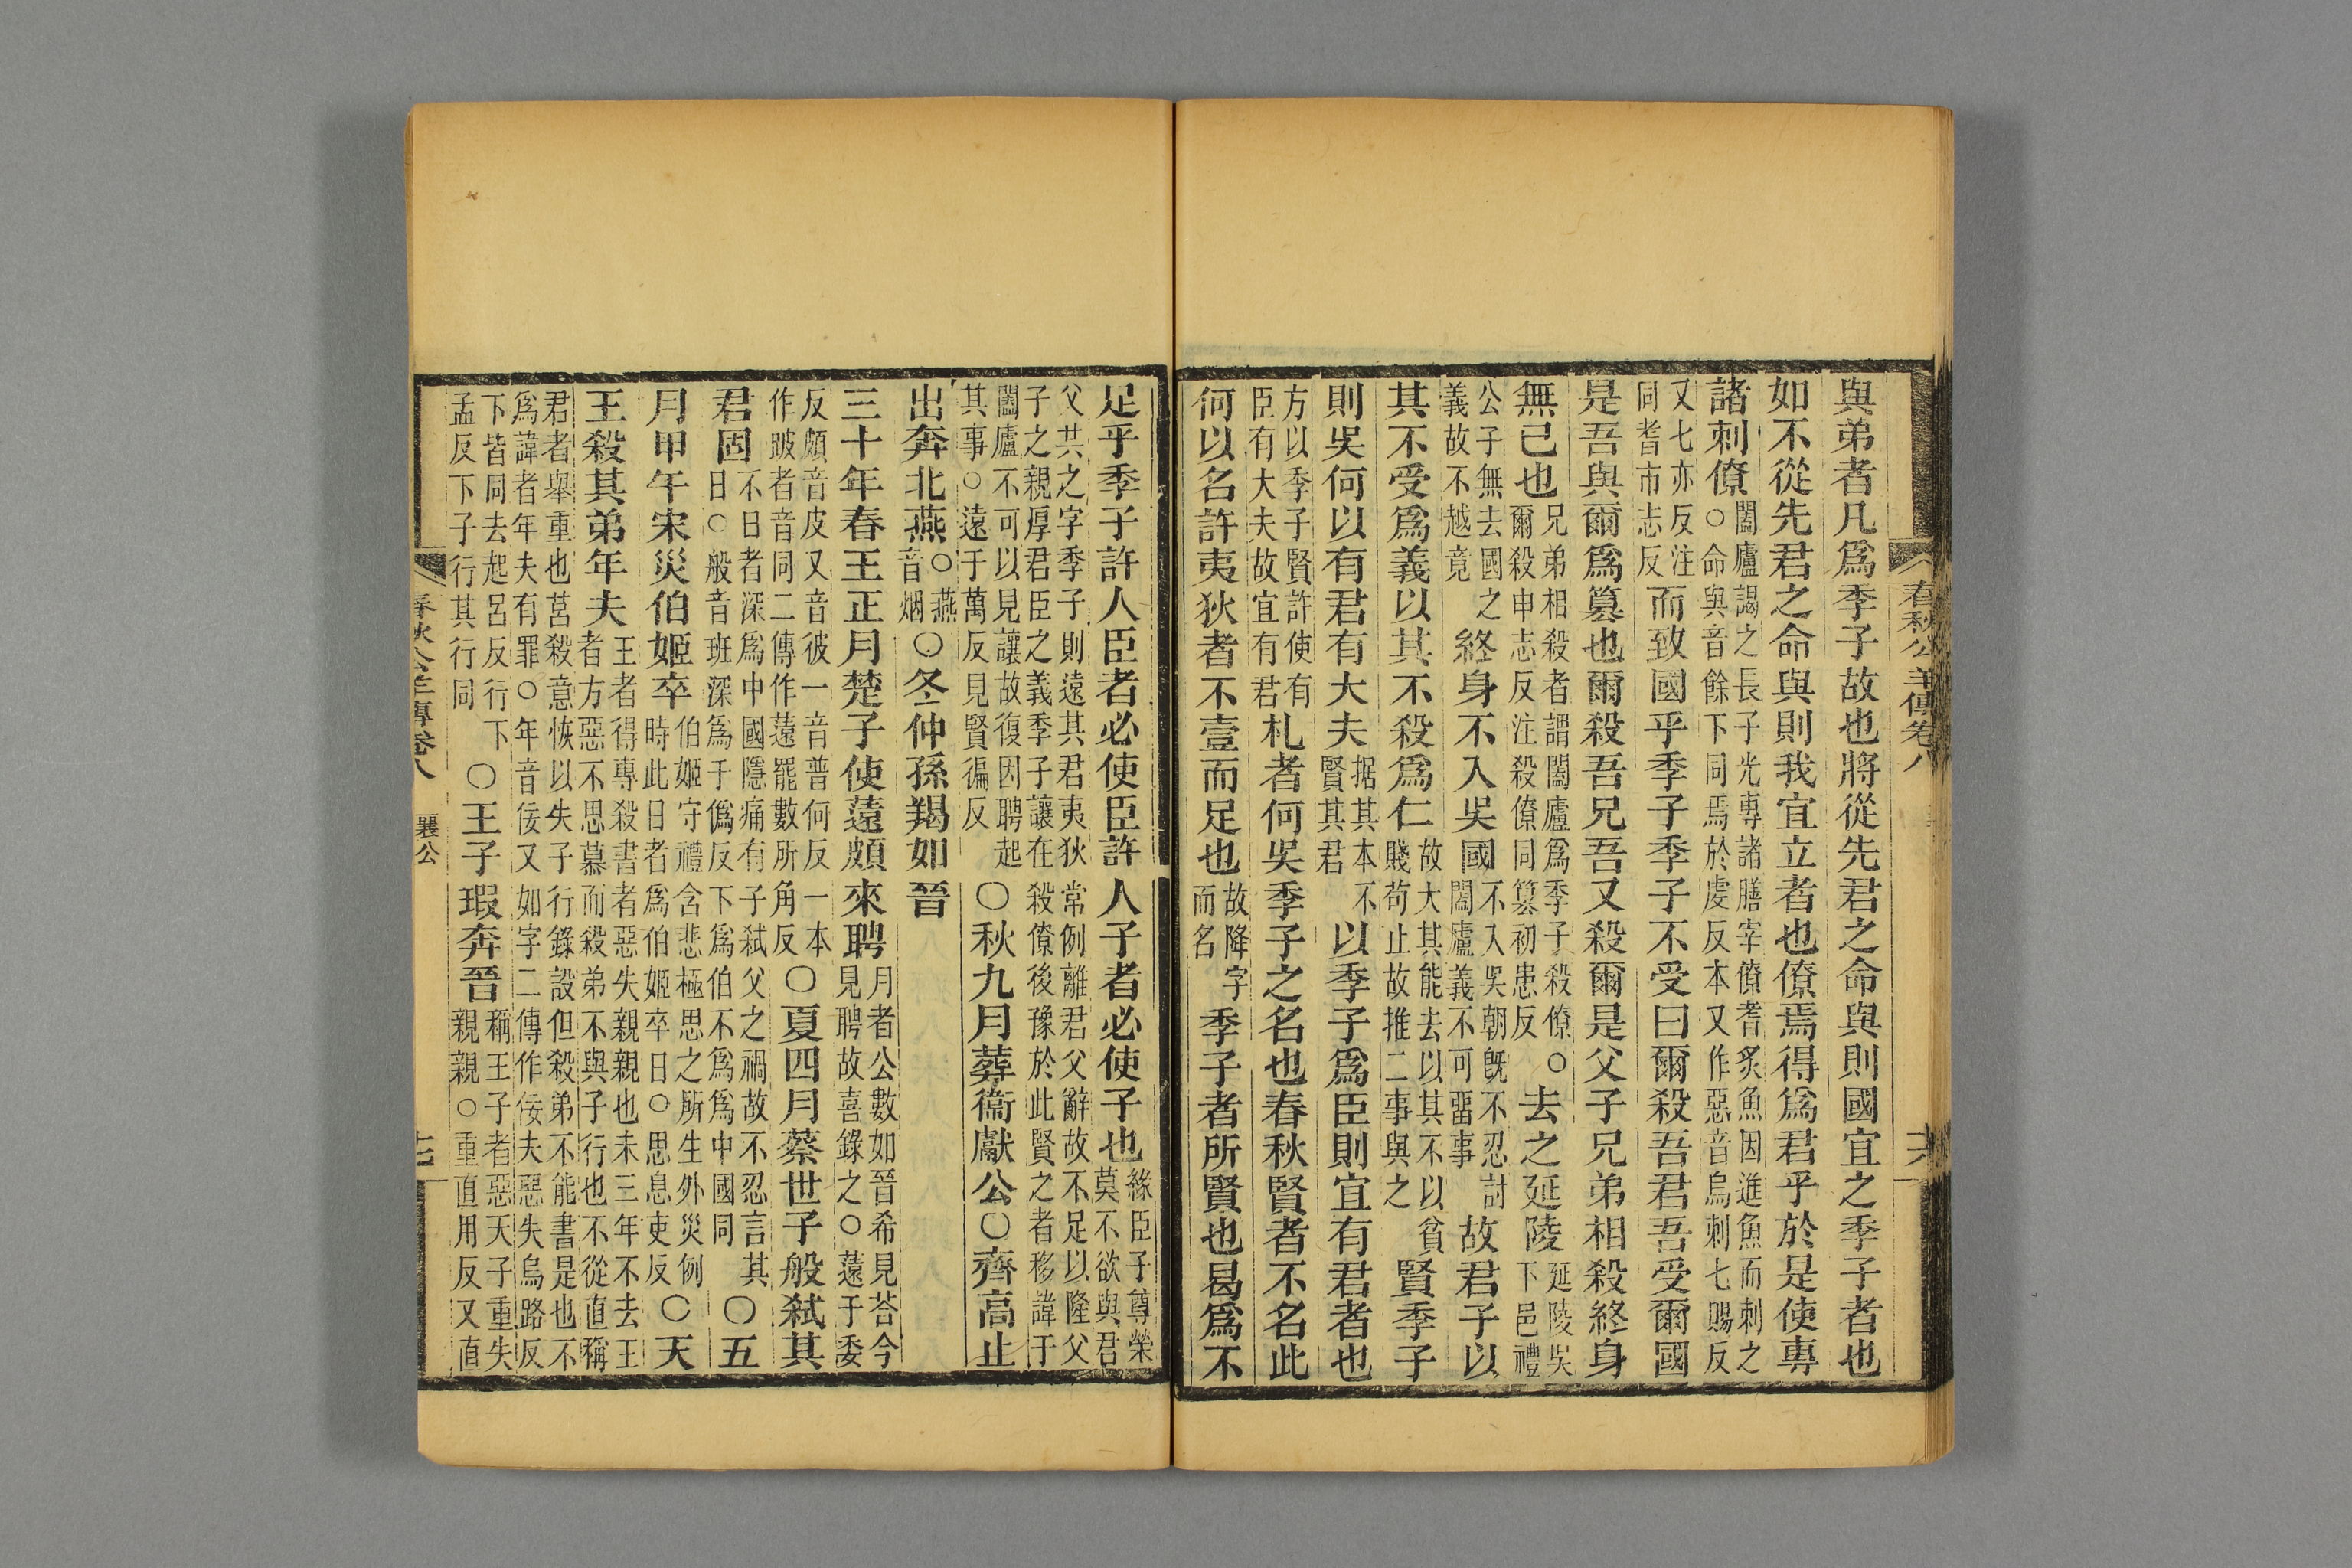 春秋公羊傳卷八
與弟者凡爲季子故也將從先君之命與則國宜之季子者也
如不從先君之命與則我宜立者也僚焉得爲君乎於是使專
諸刺僚闔廬謁之長子光專諸膳宰僚耆炙魚因進魚而刺之○命與音餘下同焉於虔反本又作惡音烏刺七賜反
又七亦反注同耆市志反而致國乎季子季子不受曰爾殺吾君吾受爾國
是吾與爾爲篡也爾殺吾兄吾又殺爾是父子兄弟相殺終身
無已也兄弟相殺者謂闔廬爲季子殺僚○爾殺申志反注殺僚同篡初患反去之延陵延陵吳下邑禮
公子無去國之義故不越竟終身不入吳國不入吳朝旣不忍討闔廬義不可畱事故君子以
其不受爲義以其不殺爲仁故大其能去以其不以貧賤苟止故推二事與之賢季子
則吳何以有君有大夫据其本不賢其君以季子爲臣則宜有君者也
方以季子賢許使有臣有大夫故宜有君札者何吳季子之名也春秋賢者不名此
何以名許夷狄者不壹而足也故降字而名季子者所賢也曷爲不
足乎季子許人臣者必使臣許人子者必使子也緣臣子尊榮莫不欲與君
父共之字季子則遠其君夷狄常例離君父辭故不足以隆父子之親厚君臣之義季子讓在殺僚後豫於此賢之者移諱于
闔廬不可以見讓故復因聘起其事○遠于萬反見賢徧反○秋九月葬衞獻公○齊高止
出奔北燕○燕音烟○冬仲孫羯如晉
三十年春王正月楚子使薳頗來聘月者公數如晉希見荅今見聘故喜錄之○薳于委
反頗音皮又音彼一音普何反一本作跛者音同二傳作薳罷數所角反○夏四月蔡世子般弒其
君固不日者深爲中國隱痛有子弒父之禍故不忍言其日○般音班深爲于僞反下爲伯不爲爲中國同○五
月甲午宋災伯姬卒伯姬守禮含悲極思之所生外災例時此日者爲伯姬卒日○思息吏反○天
王殺其弟年夫王者得專殺書者惡失親親也未三年不去王者方惡不思慕而殺弟不與子行也不從直稱
君者舉重也莒殺意恢以失子行錄設但殺弟不能書是也不爲諱者年夫有罪○年音佞又如字二傳作佞夫惡失烏路反
下皆同去起呂反行下孟反下子行其行同○王子瑕奔晉稱王子者惡天子重失親親○重直用反又直
春秋公羊傳卷八
襄公